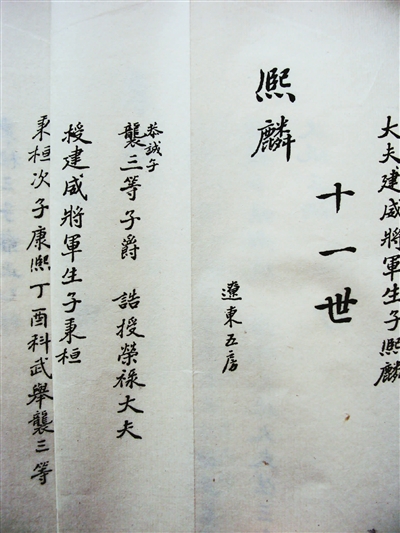 大夫建威將軍生子熙麟
十一世
遼東五房
熙麟
恭誠子
襲三等子爵 誥授榮祿大夫
授建威將軍生子秉桓
秉桓次子康熙丁酉科武舉襲三等